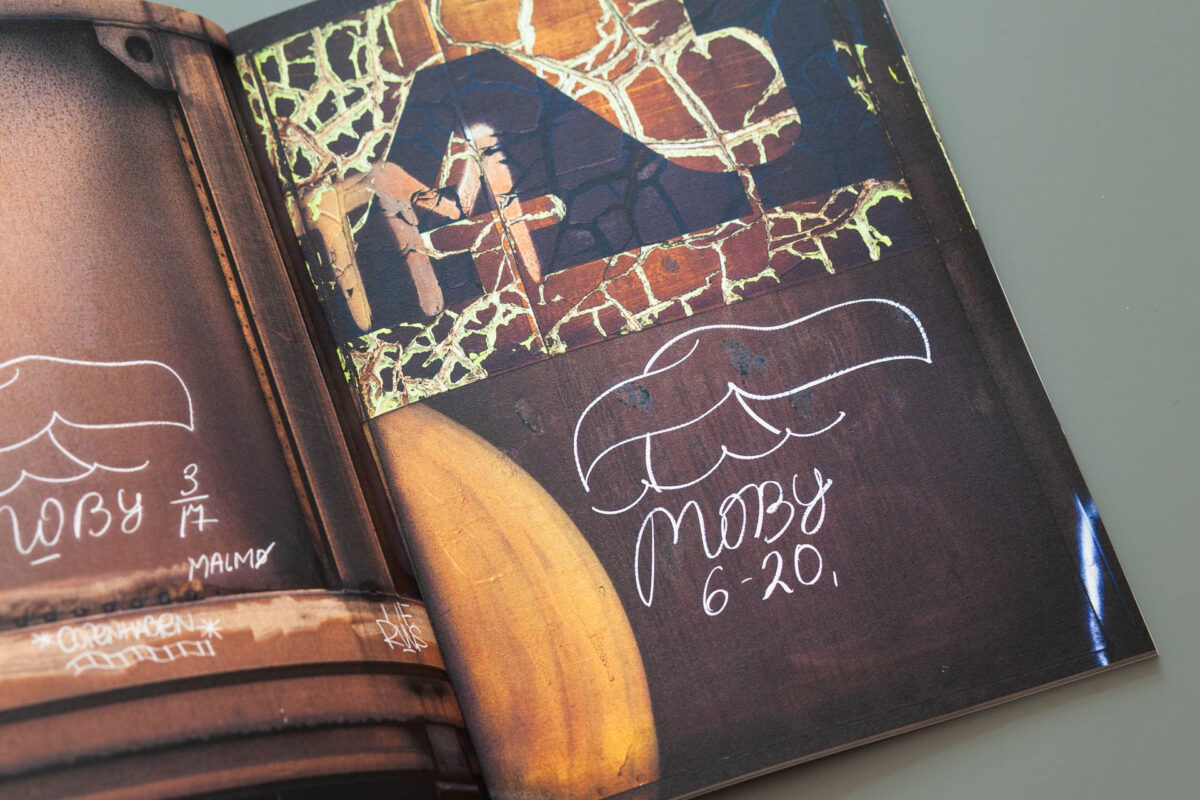 MOBY 3/17
MALMØ
*COPENHAGEN*
MOBY
6-20,